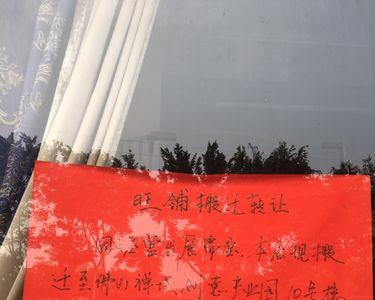 旺铺搬迁转让
因经营发展需要,本店现搬
迁至佛山禅城创意产业园10号楼